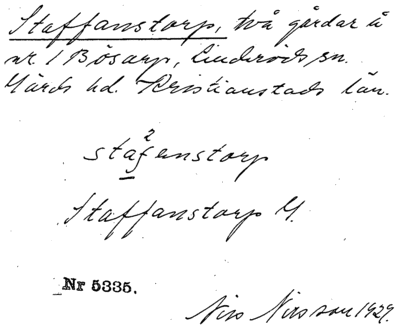 Staffanstorp, två gårdar å
nr. 1 Bösarp, Linderöds sn.
Gärds hd. Kristianstads län.
2
stafanstorp
Staffanstorp G.
Nr 5335.
Nils Nilsson 1929.